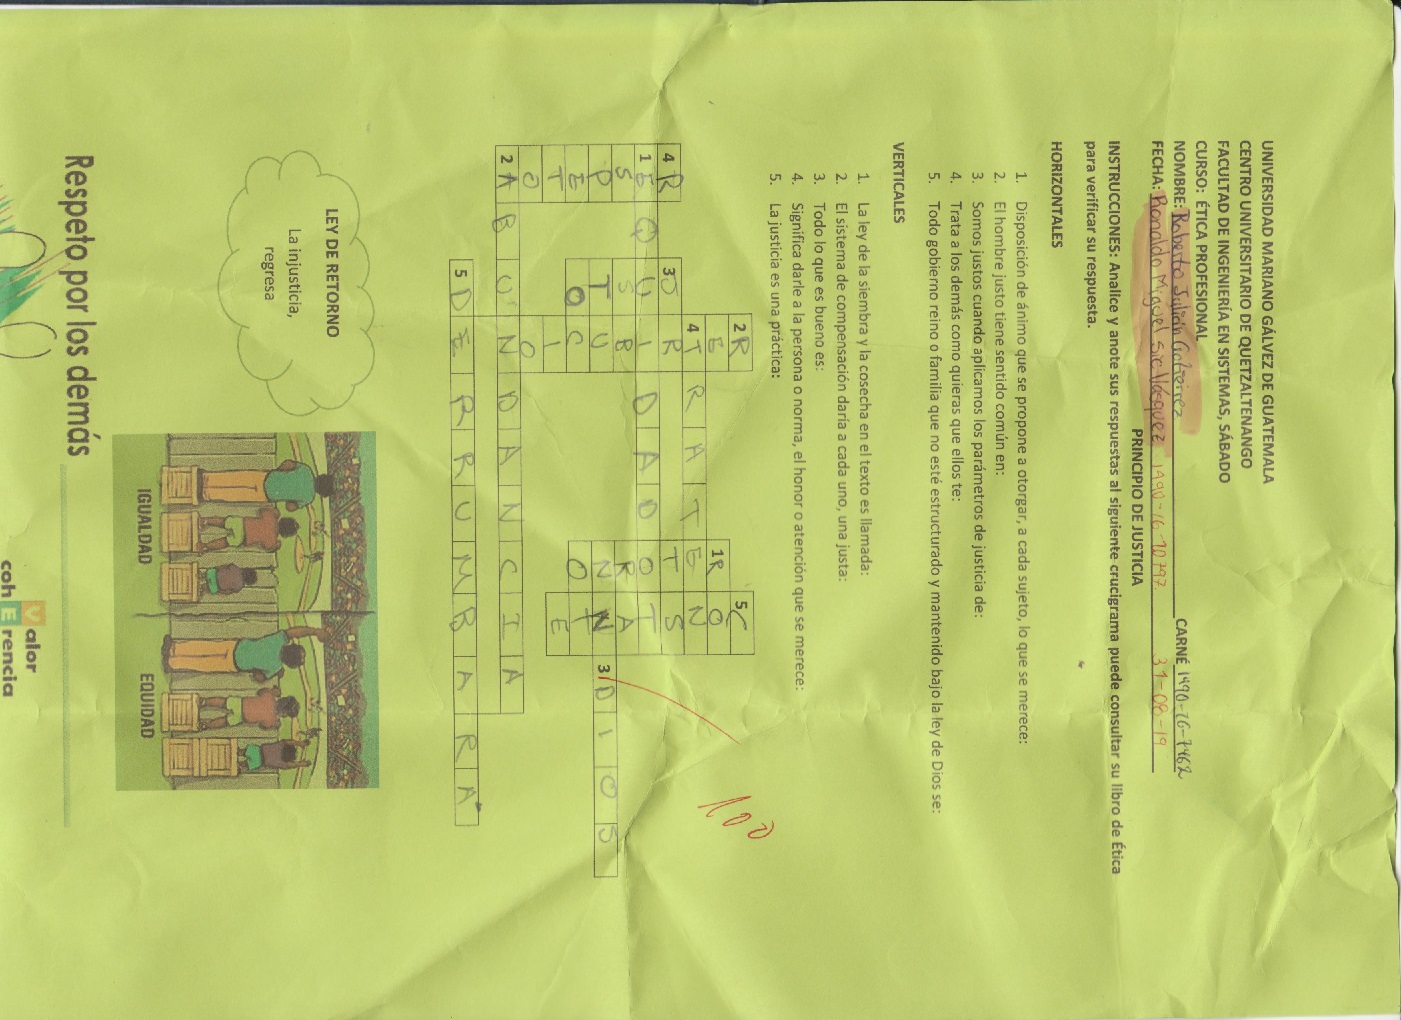 UNIVERSIDAD MARIANO GÁLVEZ DE GUATEMALA
CENTRO UNIVERSITARIO DE QUETZALTENANGO
FACULTAD DE INGENIERÍA EN SISTEMAS, SÁBADO
CURSO: ÉTICA PROFESIONAL
NOMBRE: Roberto Julián Gutierrez CARNÉ 1490-16-7462
FECHA: Ronaldo Miguel Sic Vásquez 1990-16-10797 31-08-19
PRINCIPIO DE JUSTICIA
INSTRUCCIONES: Analice y anote sus respuestas al siguiente crucigrama puede consultar su libro de Ética
para verificar su respuesta.
HORIZONTALES
1. Disposición de ánimo que se propone a otorgar, a cada sujeto, lo que se merece:
2. El hombre justo tiene sentido común en:
3. Somos justos cuando aplicamos los parámetros de justicia de:
4. Trata a los demás como quieras que ellos te:
5. Todo gobierno reino o familia que no esté estructurado y mantenido bajo la ley de Dios se:
VERTICALES
1. La ley de la siembra y la cosecha en el texto es llamada:
2. El sistema de compensación daría a cada uno, una justa:
3. Todo lo que es bueno es:
4. Significa darle a la persona o norma, el honor o atención que se merece:
5. La justicia es una práctica:
2 R 5 C
E 1 R O
4 T R A T E N
4 R 3 J R T S
1 E Q U I D A D O T
S S B R A
P T U N N 3 D I O S
E O C O T
T I E
O O
2 A B U N D A N C I A
5 D E R R U M B A R A
100
LEY DE RETORNO
La injusticia,
regresa
IGUALDAD
EQUIDAD
Respeto por los demás
Valor
cohErencia